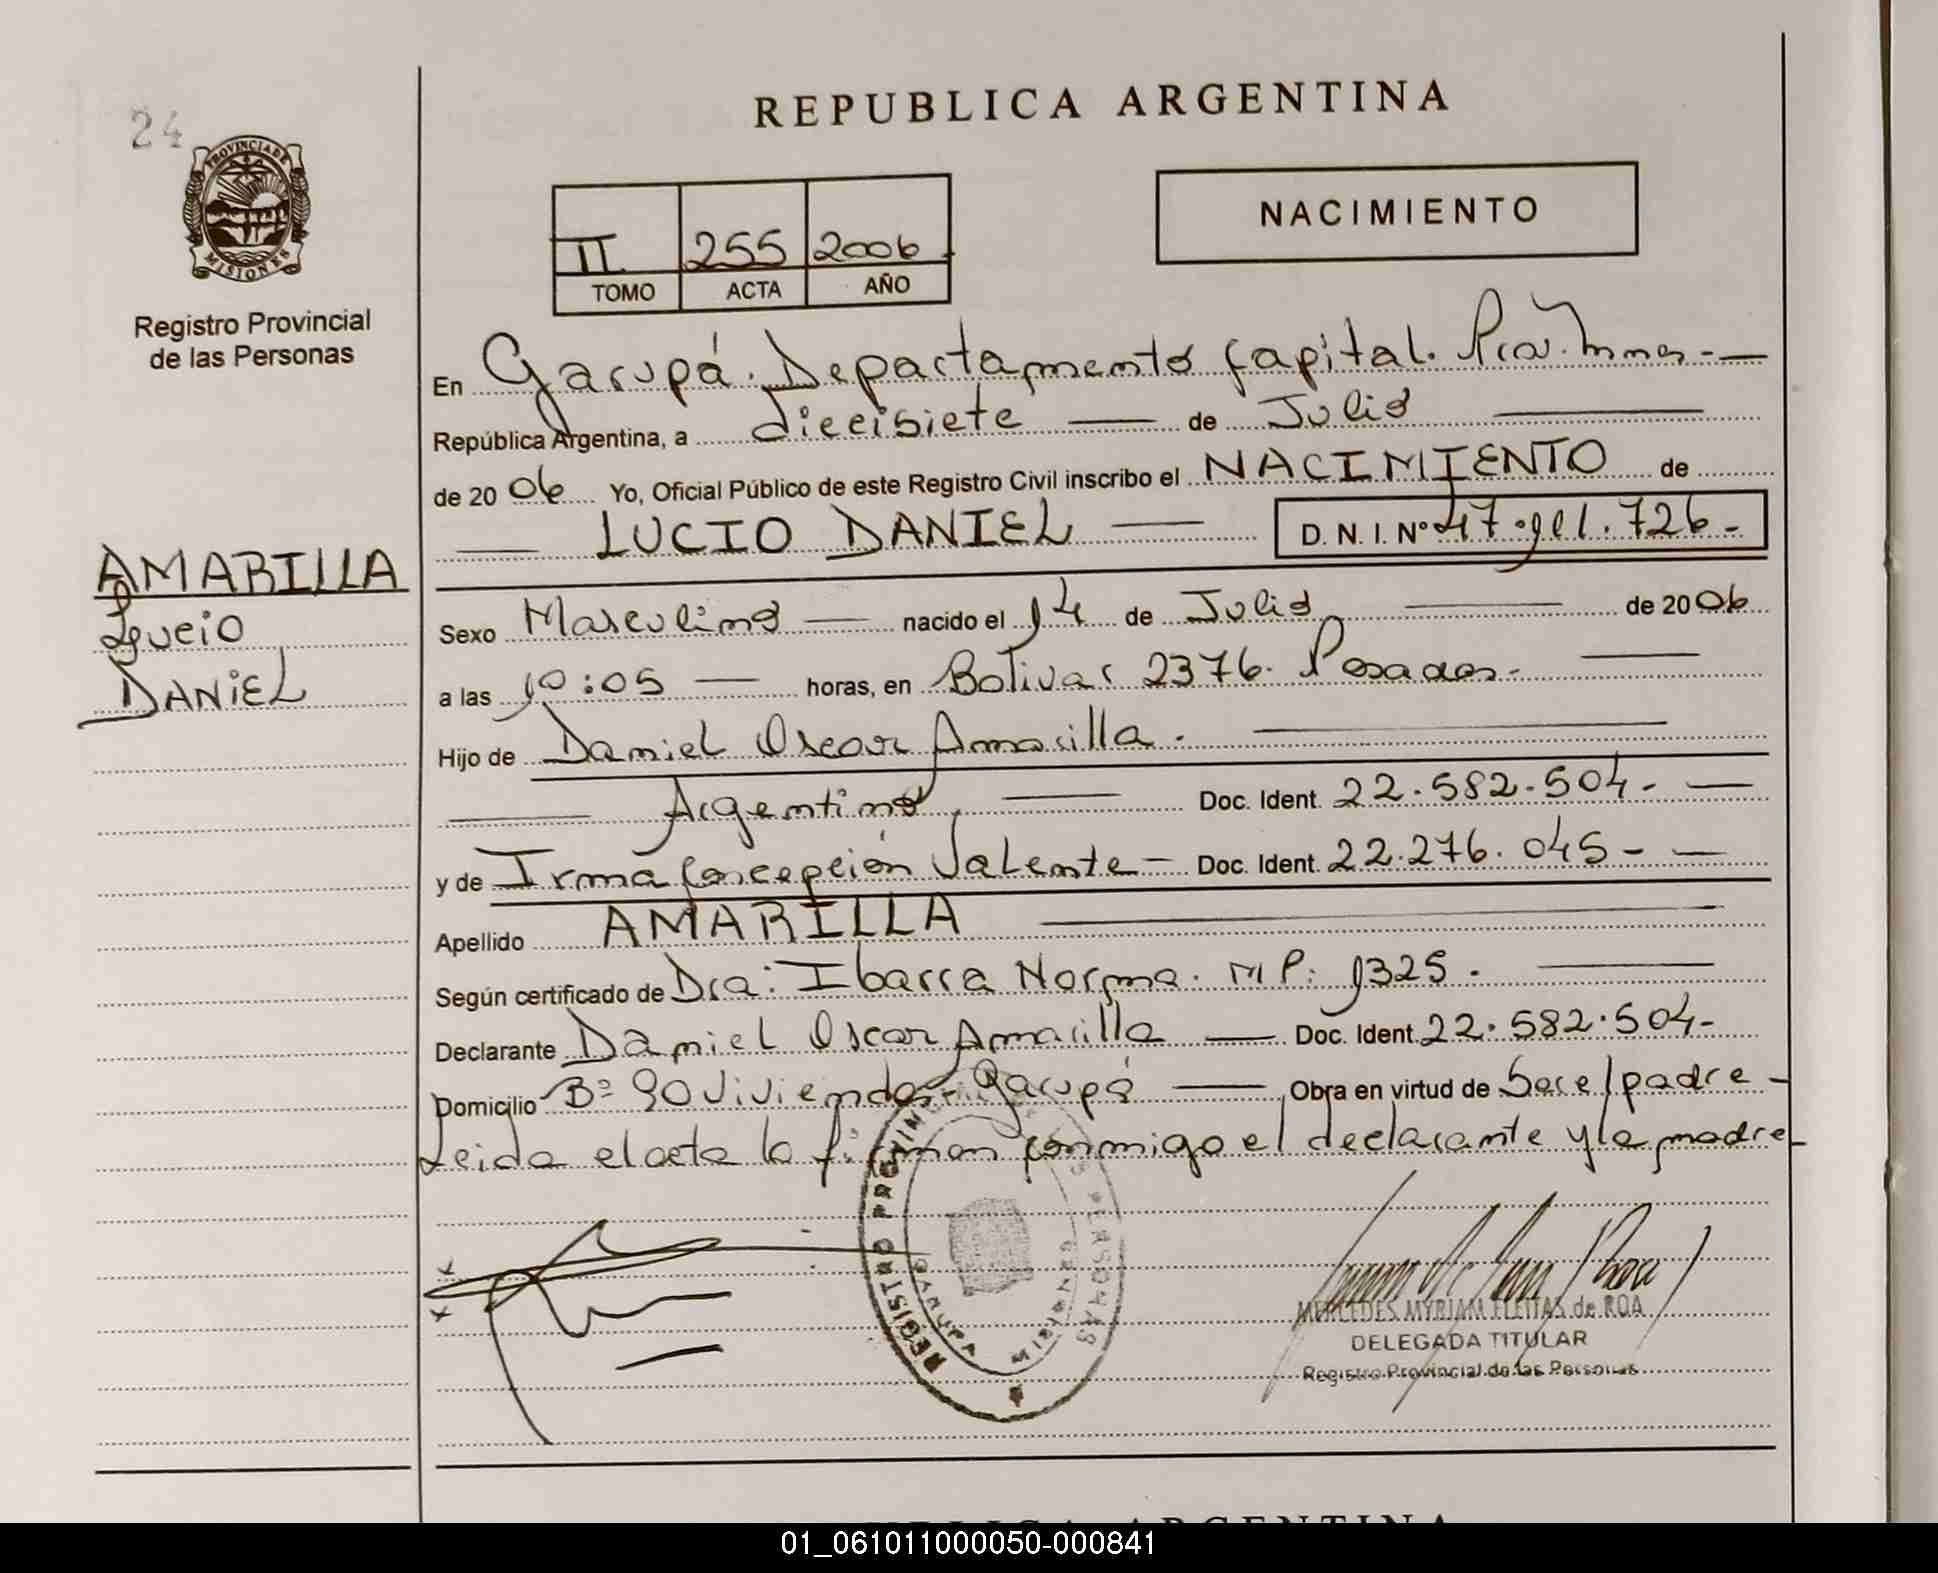 REPUBLICA ARGENTINA
24
PROVINCIA DE
MISIONES
Registro Provincial
de las Personas
II 255 2006
TOMO ACTA AÑO
NACIMIENTO
En Garupá. Departamento Capital. Prov. Mnes.-
República Argentina, a diecisiete de Julio
de 2006 Yo, Oficial Público de este Registro Civil inscribo el NACIMIENTO de
LUCIO DANIEL D. N. I. Nº 47.001.726-
AMARILLA
Lucio
DANIEL
Sexo Masculino nacido el 14 de Julio de 2006
a las 10:05 horas, en Bolivar 2376. Posadas.
Hijo de Daniel Oscar Amarilla.
Argentino Doc. Ident. 22.582.504.-
y de Irma Concepción Valente - Doc. Ident. 22.276.045 -
Apellido AMARILLA
Según certificado de Dra: Ibarra Norma. MP: 1325.
Declarante Daniel Oscar Amarilla Doc. Ident. 22.582.504-
Domicilio Bº 90 Viviendas - Garupá Obra en virtud de Ser el padre -
Leida el acta la firman conmigo el declarante y la madre
REGISTRO PROVINCIAL DE LAS PERSONAS
MERCEDES MYRIAM FLEITAS de ROA
DELEGADA TITULAR
Registro Provincial de las Personas
REPUBLICA ARGENTINA
01_061011000050-000841